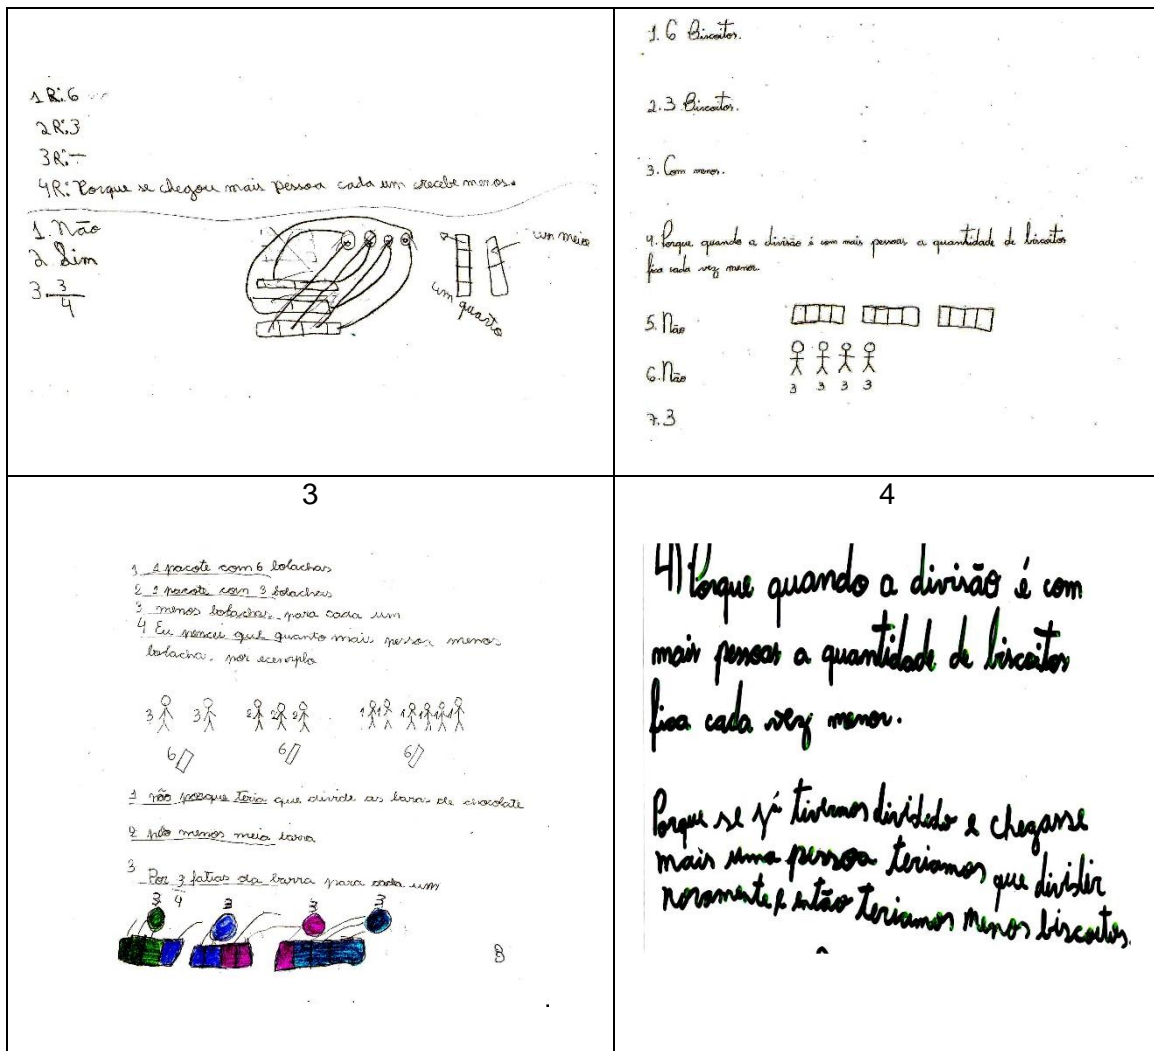 1 R: 6
2 R: 3
3 R: -
4 R: Porque se chegou mais pessoa cada um recebe menos.
1. Não
2 Sim
3 3/4
um meio
um quarto
1. 6 Biscoitos.
2. 3 Biscoitos.
3. Com menos.
4. Porque quando a divisão é com mais pessoas a quantidade de biscoitos
fica cada vez menor.
5. Não
6. Não
3 3 3 3
7. 3
3
1 1 pacote com 6 bolachas
2 1 pacote com 3 bolachas
3 menos bolachas para cada um
4 Eu pensei que quanto mais pessoa menos
bolacha, por ecemplo
3 3 2 2 2 1 1 1 1 1 1
6 6 6
1 não porque teria que divide as baras de chocolate
2 pelo menos meia barra
3 Por 3/4 fatias da barra para cada um
3 3 3 3
4
4) Porque quando a divisão é com
mais pessoas a quantidade de biscoitos
fica cada vez menor.
Porque se já tivermos dividido e chegasse
mais uma pessoa teriamos que dividir
novamente e então teriamos menos biscoitos.